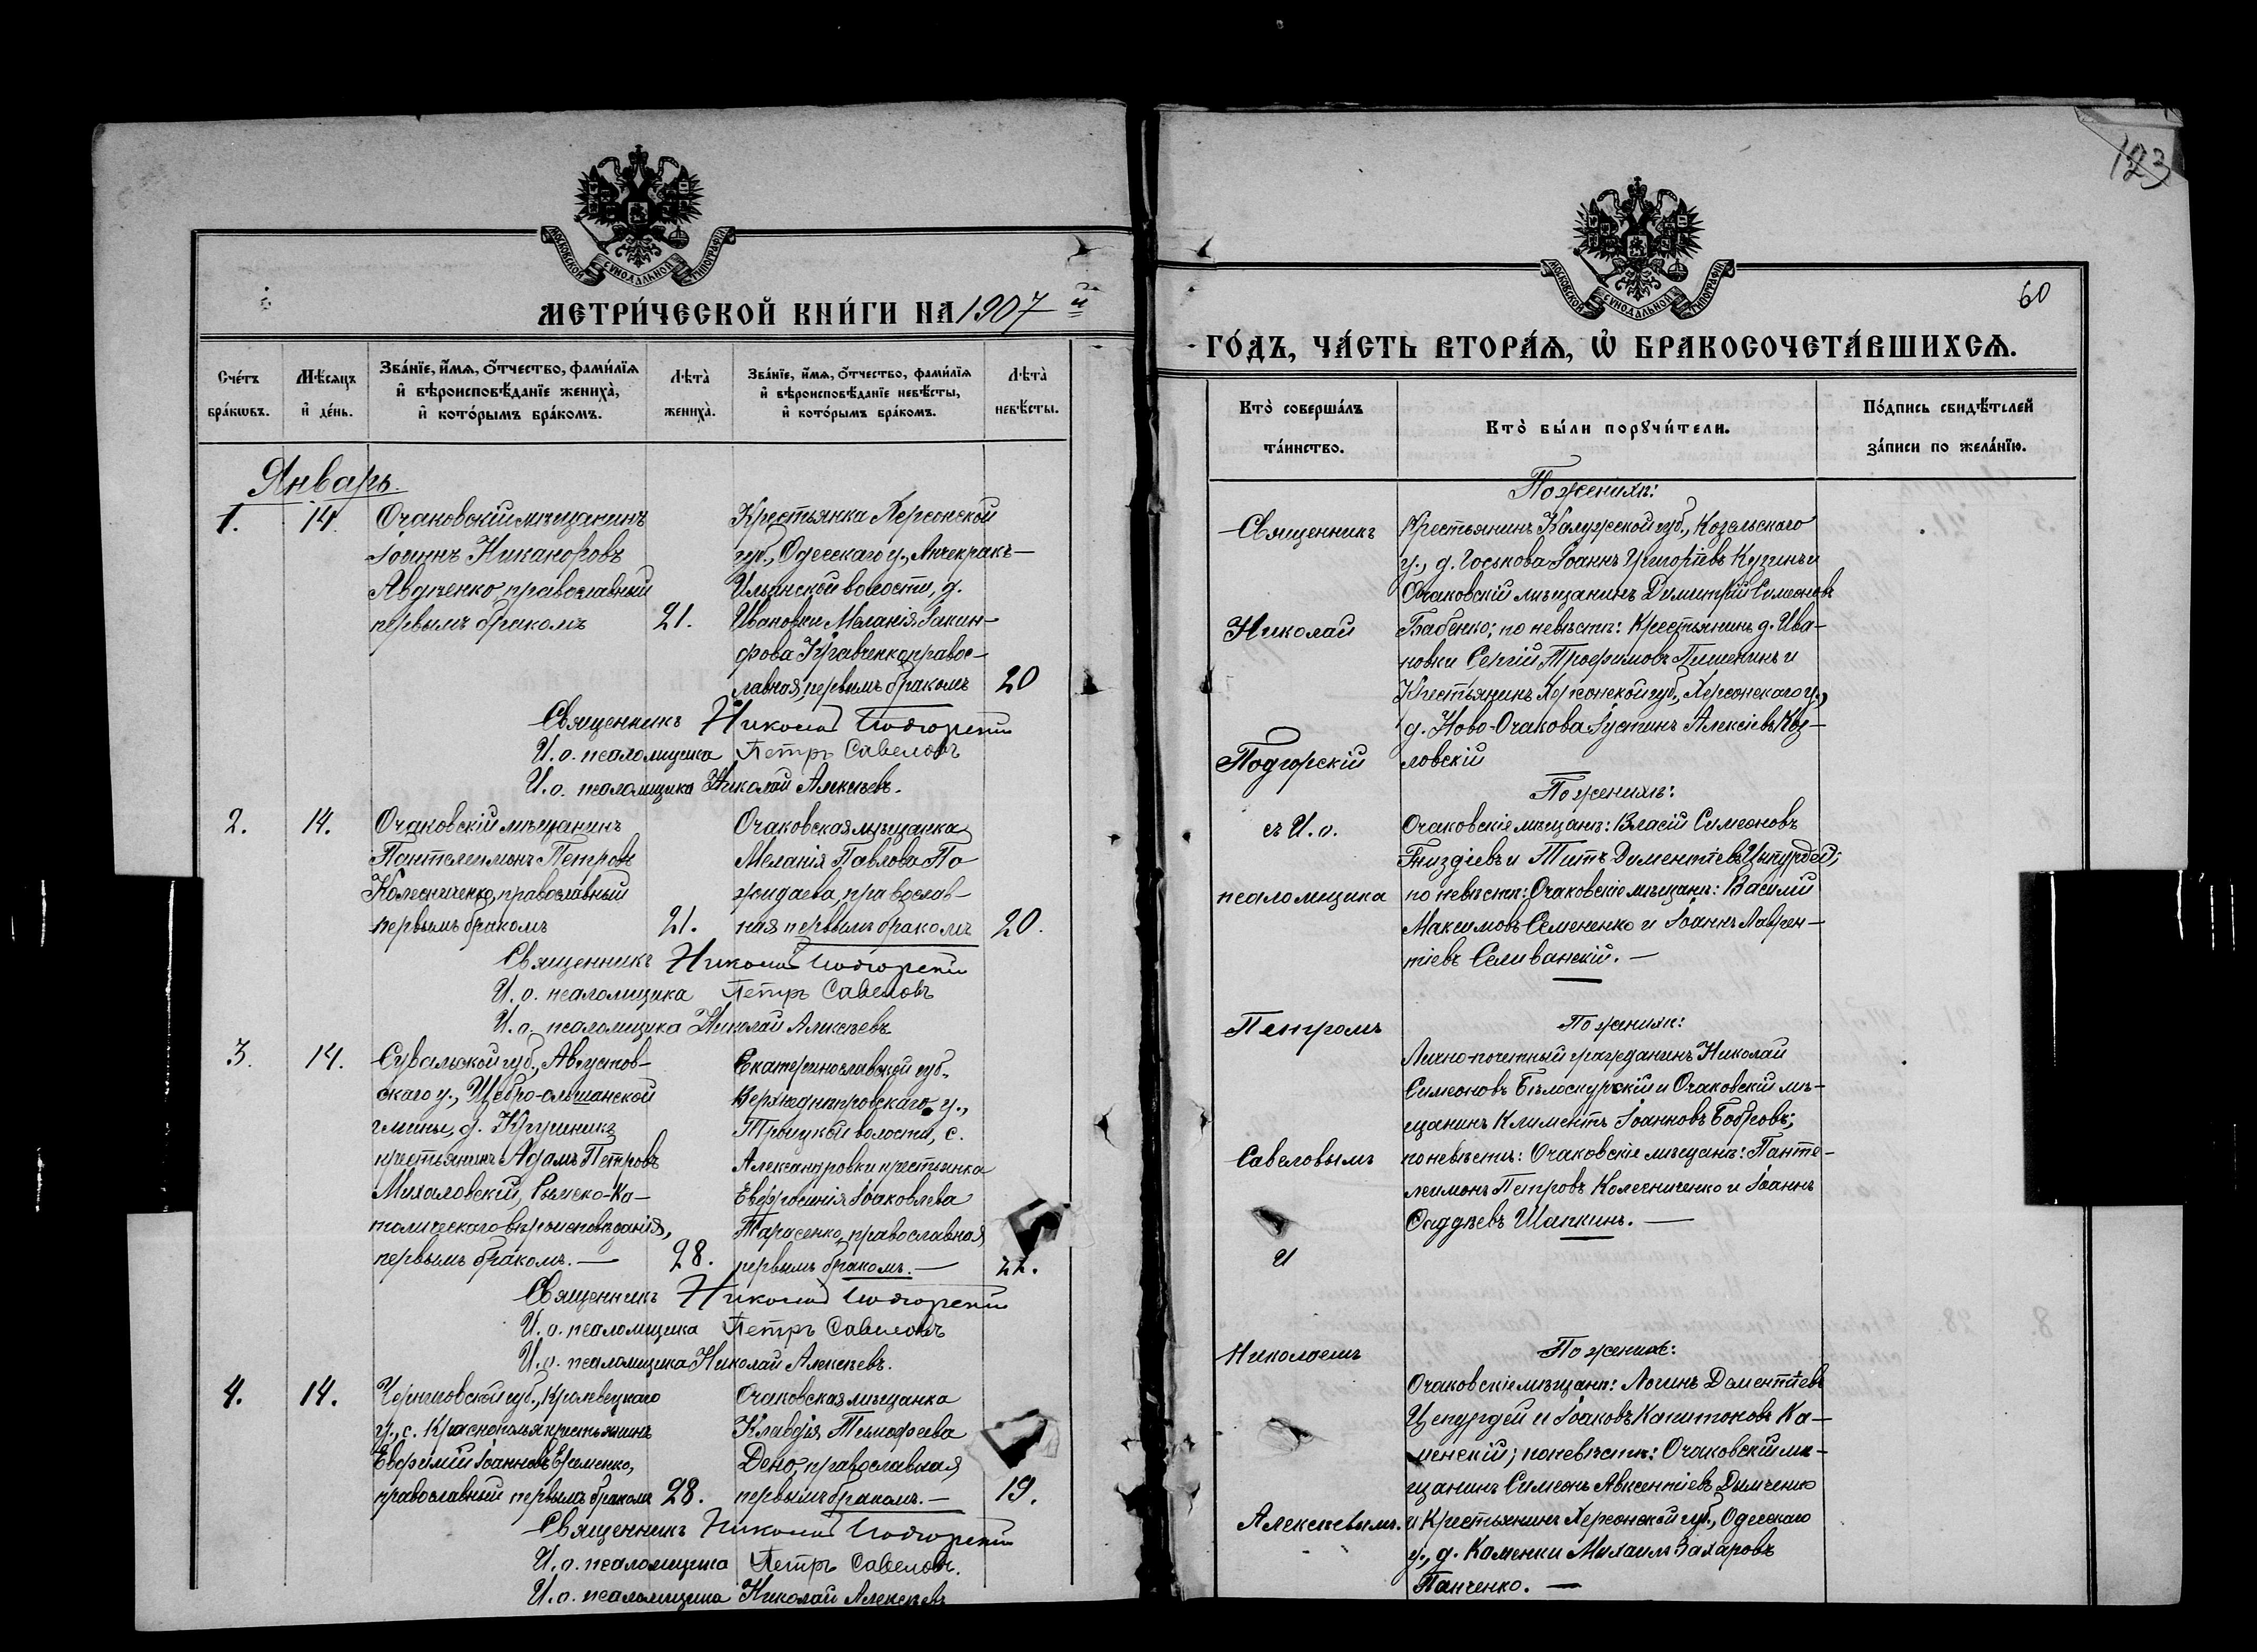 МОСКОВСКОЙ СѴНОДАЛЬНОЙ ТИПОГРАФІИ
МЕТРИ́ЧЕСКОЙ КНИ́ГИ НА 1907 й
Сче́тъ бра́кѡвъ.
Мѣ́сяцъ и҆ де́нь.
Зва́нїе, и҆́мѧ, ѻ҆́тчество, фами́лїѧ
и҆ вѣроисповѣ́данїе жениха̀,
и҆ кото́рымъ бра́комъ.
Лѣта̀ жениха̀.
Зва́нїе, и҆́мѧ, ѻ҆́тчество, фами́лїѧ
и҆ вѣроисповѣ́данїе невѣ́сты,
и҆ кото́рымъ бра́комъ.
Лѣта̀ невѣ́сты.
Январь.
1.
14.
Очаковскій мѣщанинъ
Іоаннъ Никаноровъ
Авдченко православный
первымъ бракомъ
21.
Крестьянка Херсонской
губ., Одесскаго у., Анчекракъ—
Ильинской волости, д.
Ивановки Меланія Іакин-
фова Кравченко, правос-
лавная, первымъ бракомъ
20
Священникъ Николай Подгорскій
И. о. псаломщика Петръ Савеловъ
И. о. псаломщика Николай Алексѣевъ.
2.
14.
Очаковскій мѣщанинъ
Пантелеимонъ Петровъ
Колесниченко, православный
первымъ бракомъ
21.
Очаковская мѣщанка
Меланія Павлова По
жидаева, православ-
ная первымъ бракомъ
20.
Священникъ Николай Подгорскій
И. о. псаломщика Петръ Савеловъ
И. о. псаломщика Николай Алексѣевъ
3.
14.
Сувалкской губ., Августов-
скаго у., Щебро-ольшанской
гмины, д.
крестьянинъ Адамъ Петровъ
Михаловскій, Римско-Ка-
толическаго вѣроисповѣданія,
первымъ бракомъ.—
28.
Екатеринославской губ.,
Верхнеднѣпровскаго у.,
Троицкой волости, с.
Александровки крестьянка
Евфросинія Іоаковлева
Тарасенко, православная
первымъ бракомъ.—
Священникъ Николай Подгорскій
И. о. псаломщика Петръ Савеловъ
И. о. псаломщика Николай Алексѣевъ.
4.
14.
Черниговской губ., Кролевецкаго
у., с. Краснополья крестьянинъ
Евфимій Іоанновъ Еременко,
православный первымъ бракомъ
28.
Очаковская мѣщанка
Клавдія Тимофеева
Дено, православная
первымъ бракомъ.—
19.
Священникъ Николай Подгорскій
И. о. псаломщика Петръ Савеловъ.
И. о. псаломщика Николай Алексѣевъ
123
МОСКОВСКОЙ СѴНОДАЛЬНОЙ ТИПОГРАФІИ
60
ГО́ДЪ, ЧА́СТЬ ВТОРА́Ѧ, Ѽ БРАКОСОЧЕТА́ВШИХСѦ.
Кто̀ соверша́лъ та́инство.
Кто̀ бы́ли порꙋчи́тели.
По́дпись свидѣ́телей
за́писи по жела́нїю.
Священникъ
Николай
Подгорскій
съ И. о.
псаломщика
Петромъ
Савеловымъ
и
Николаемъ
Алексѣевымъ.
По женихѣ:
Крестьянинъ Калужской губ., Козельскаго
у., д. Госькова Іоаннъ Григоріевъ Кузинъ и
Очаковскій мѣщанинъ Димитрій Симеоновъ
Бабенко; по невѣстѣ: Крестьянинъ д. Ива-
новки Сергій Трофимовъ Пишенинъ и
Крестьянинъ Херсонской губ., Херсонскаго у.,
д. Ново-Очакова Іустинъ Алексіевъ Коз-
ловскій
По женихѣ:
Очаковскіе мѣщане: Власій Симеоновъ
Гниздіевъ и Титъ Дементіевъ Цыпурдей;
по невѣстѣ: Очаковскіе мѣщане: Василій
Максимовъ Семененко и Іоаннъ Лаврен-
тіевъ Селиванскій.—
По женихѣ:
Лично-почетный гражданинъ Николай
Симеоновъ Бѣлоскурскій и Очаковскій мѣ-
щанинъ Климентъ Іоанновъ Бобровъ;
по невѣстѣ: Очаковскіе мѣщане: Панте-
леимонъ Петровъ Колесниченко и Іоаннъ
Фаддѣевъ Шапкинъ.—
По женихѣ:
Очаковскіе мѣщане: Логинъ Дементіевъ
Цепурдей и Іоаковъ Капитоновъ Ка-
менскій; по невѣстѣ: Очаковскій мѣ-
щанинъ Симеонъ Авксентіевъ Дымченко
и Крестьянинъ Херсонской губ., Одесскаго
у., д. Каменки Михаилъ Захаровъ
Панченко.—